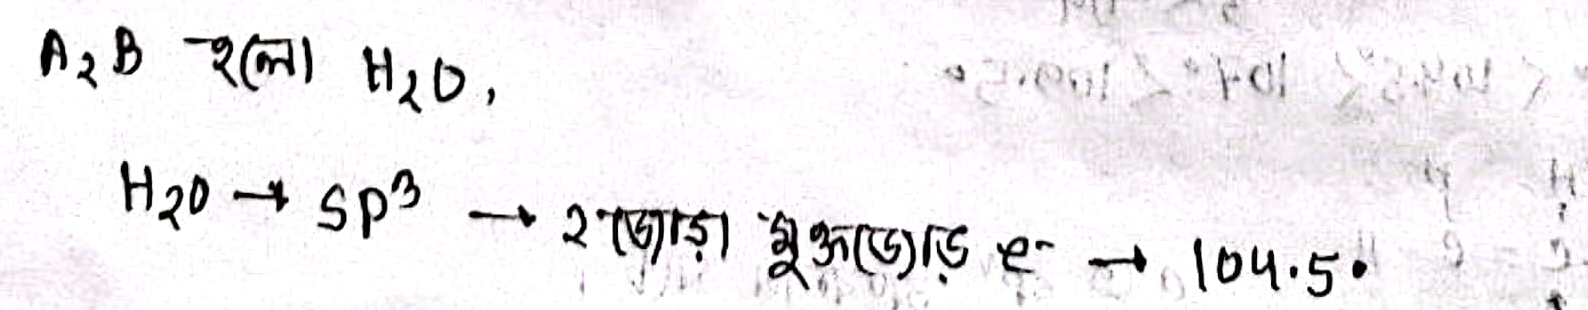 A₂B হলো H₂O,
H₂O → sp³ → ২ জোড়া মুক্তজোড় e⁻ → 104.5°